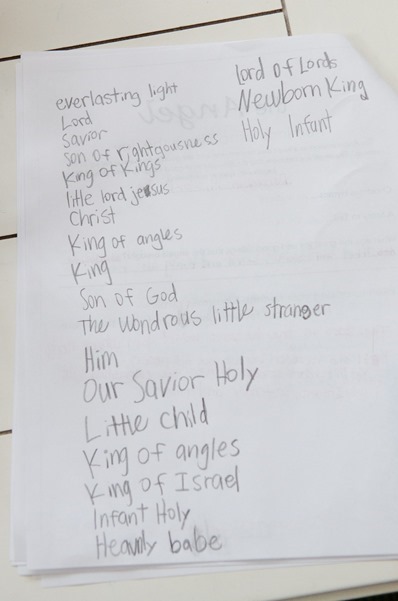 everlasting light
Lord
Savior
son of rightgousness
King of Kings
litle lord jesus
Christ
King of angles
King
Son of God
The wondrous little stranger
Him
Our Savior Holy
Little child
King of angles
King of Israel
Infant Holy
Heavnly babe
Lord of Lords
Newborn King
Holy Infant